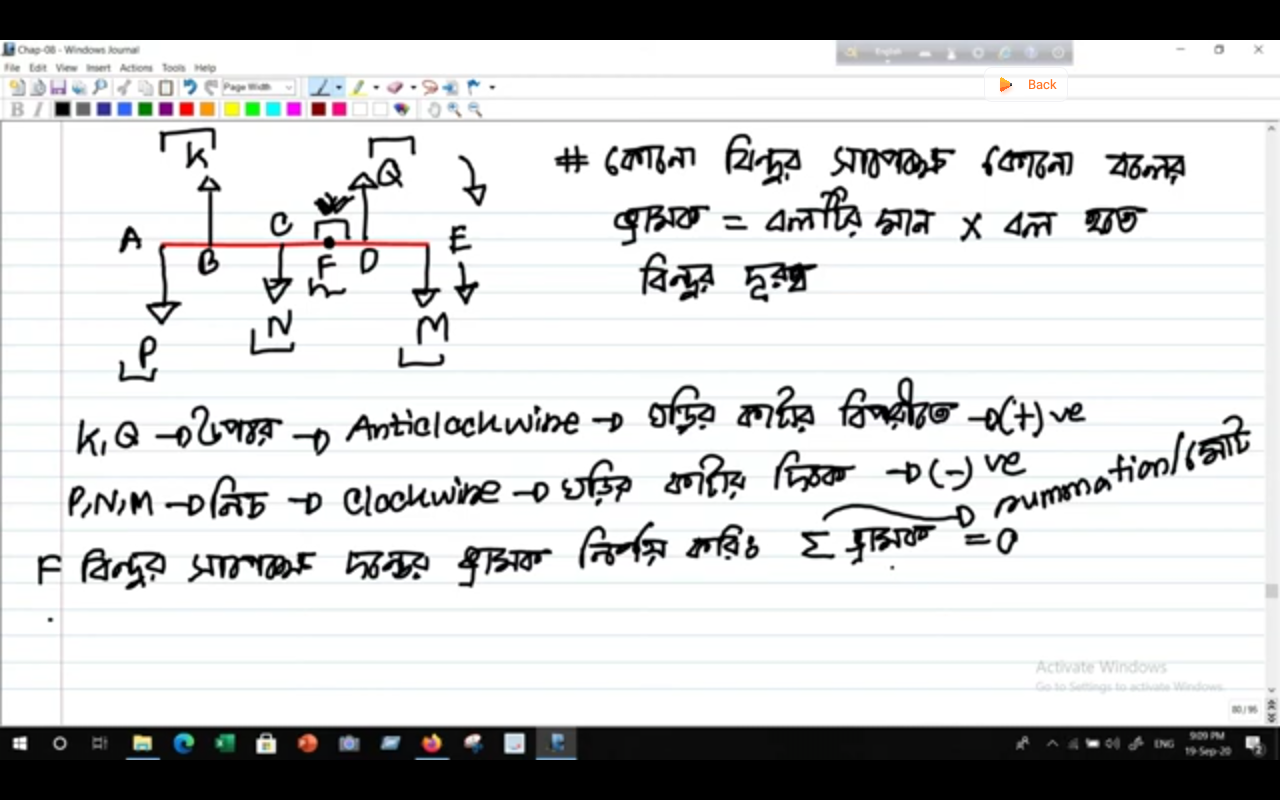 Chap-08 - Windows Journal
English
File Edit View Insert Actions Tools Help
Back
Page Width
B I
K
Q
A B C F D E
P N M
# কোনো বিন্দুর সাপেক্ষে কোনো বলের
ভ্রামক = বলটির মান × বল হতে
বিন্দুর দূরত্ব
K, Q → উপরে → Anticlockwise → ঘড়ির কাটার বিপরীতে → (+) ve
P, N, M → নিচে → Clockwise → ঘড়ির কাটার দিকে → (-) ve
summation/মোট
F বিন্দুর সাপেক্ষে দন্ডের ভ্রামক নির্ণয় করিঃ Σ ভ্রামক = 0
Activate Windows
Go to Settings to activate Windows.
80 / 95
ENG
9:09 PM
19-Sep-20
2